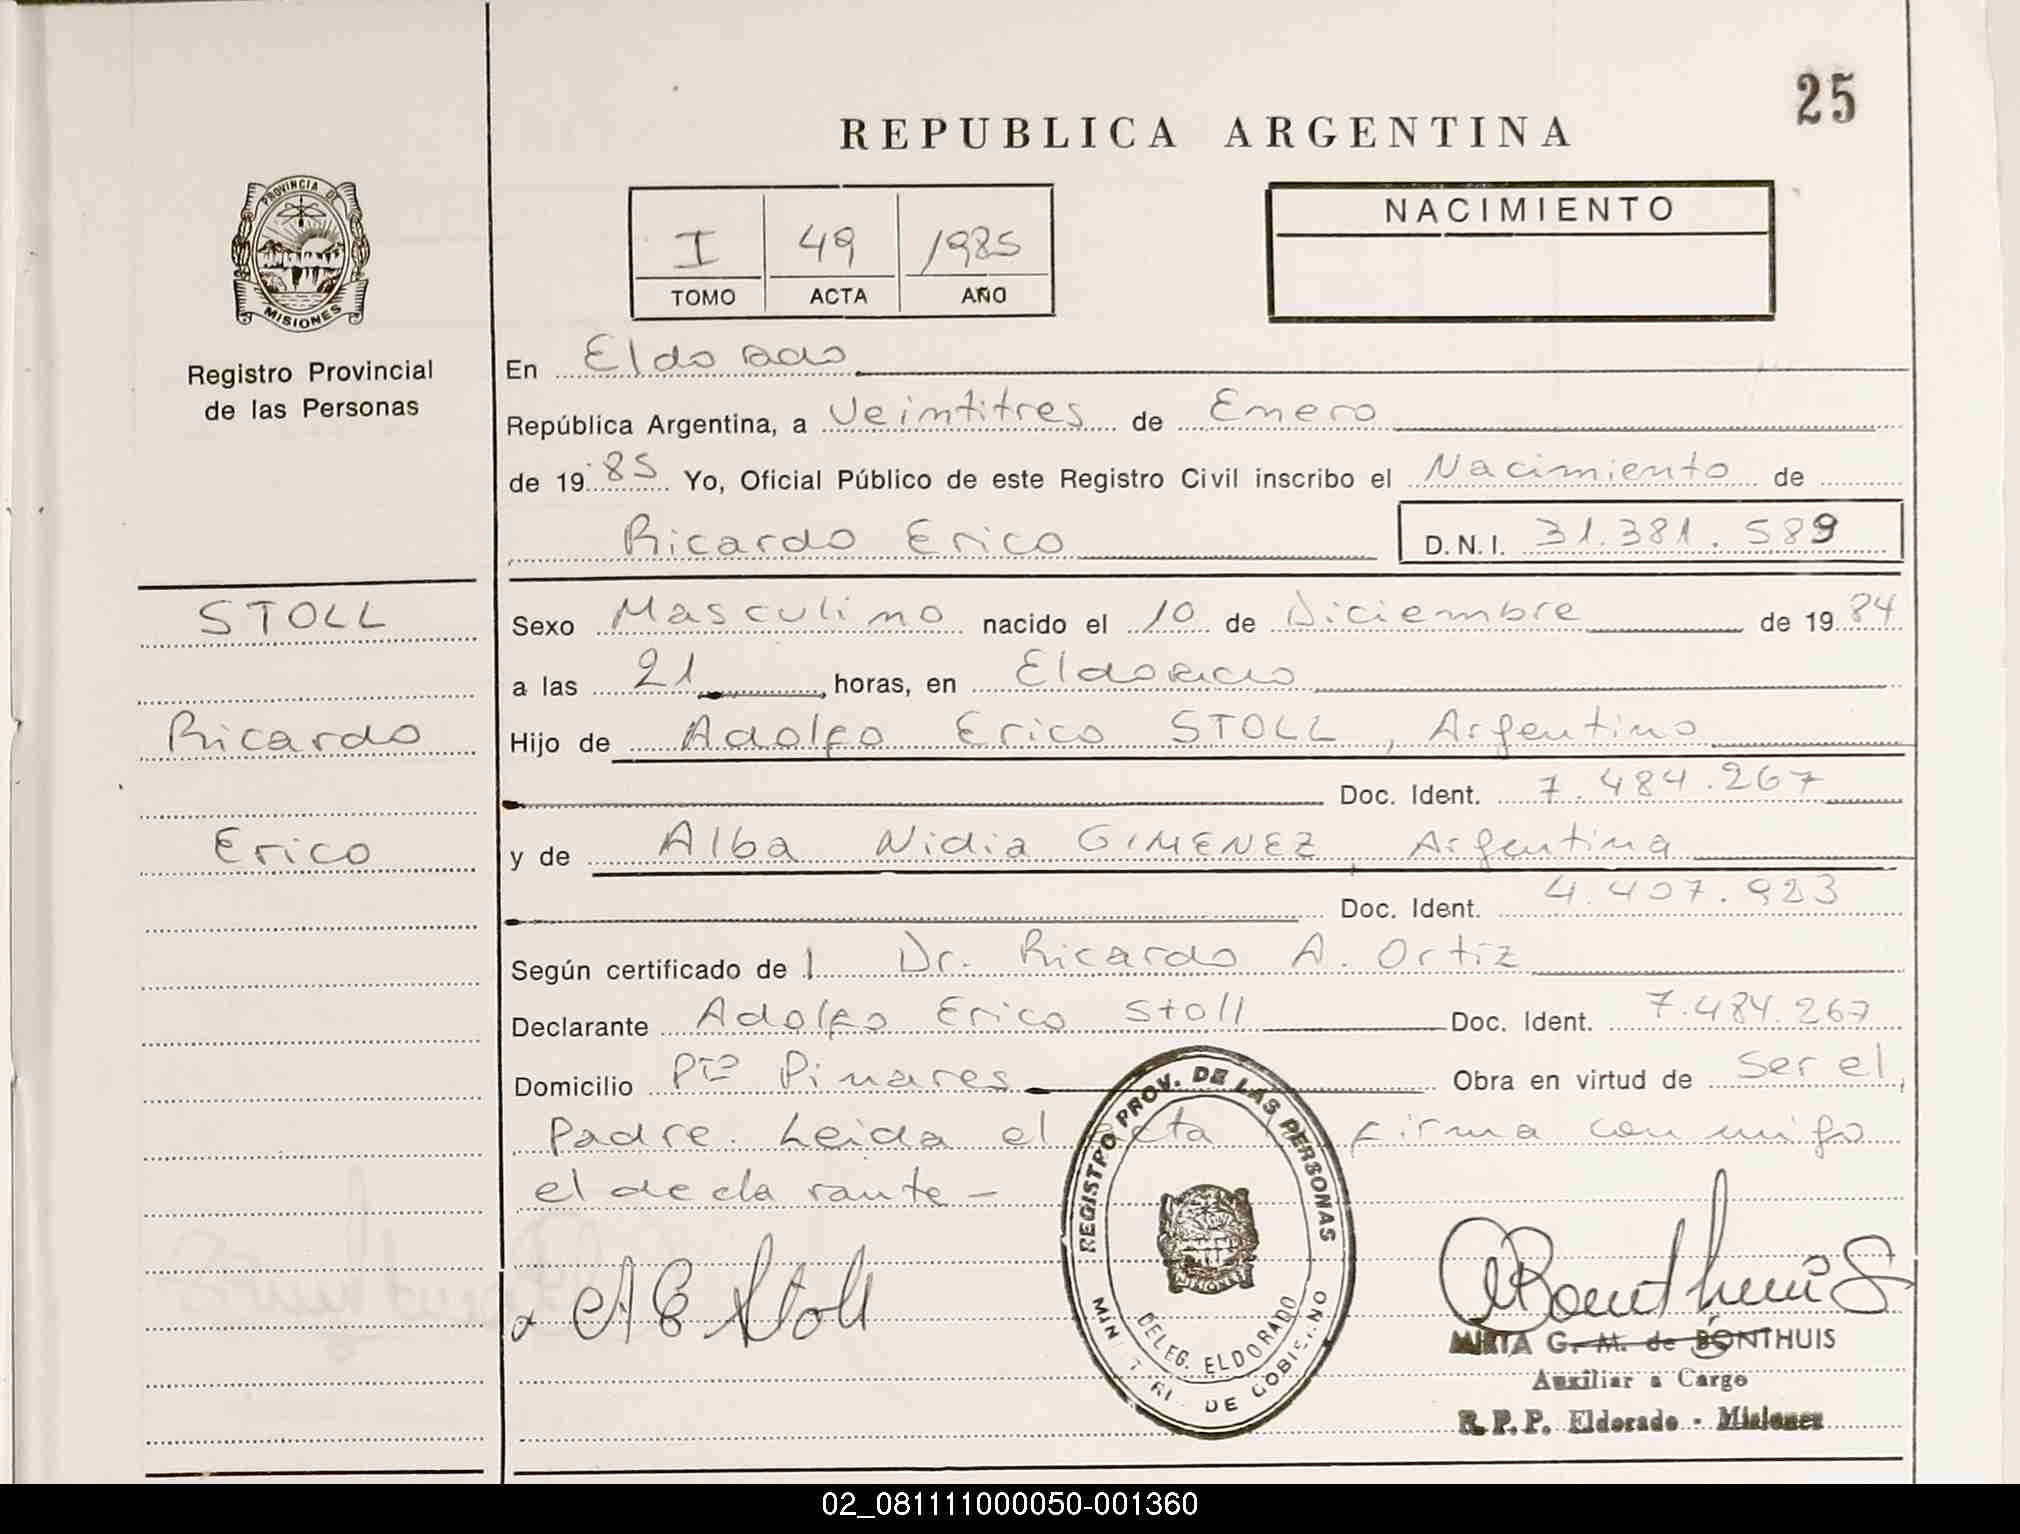 25
REPUBLICA ARGENTINA
PROVINCIA DE
MISIONES
Registro Provincial
de las Personas
I 49 1985
TOMO ACTA AÑO
NACIMIENTO
En Eldorado
República Argentina, a Veintitres de Enero
de 1985 Yo, Oficial Público de este Registro Civil inscribo el Nacimiento de
Ricardo Erico D.N.I. 31.381.589
STOLL
Ricardo
Erico
Sexo Masculino nacido el 10 de Diciembre de 1984
a las 21 horas, en Eldorado
Hijo de Adolfo Erico STOLL, Argentino
Doc. Ident. 7.484.267
y de Alba Nidia GIMENEZ, Argentina
Doc. Ident. 4.407.923
Según certificado de Dr. Ricardo A. Ortiz
Declarante Adolfo Erico Stoll Doc. Ident. 7.484.267
Domicilio Pto Pinares Obra en virtud de Ser el
Padre. Leida el acta firma conmigo
el declarante -
A E Stoll
REGISTRO PROV. DE LAS PERSONAS
DELEG. ELDORADO
DE GOBIERNO
MISIONES
Bonthuis
MIRTA G. M. de BONTHUIS
Auxiliar a Cargo
R. P. P. Eldorado - Misiones
02_081111000050-001360